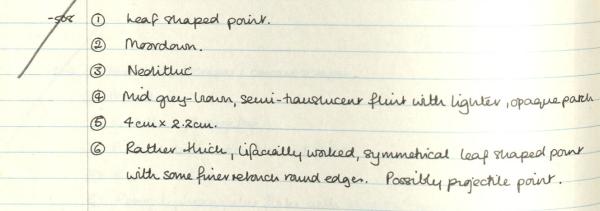 ① Leaf shaped point.
② Moordown.
③ Neolithic
④ Mid grey-brown, semi-translucent flint with lighter, opaque patch
⑤ 4cm x 2.2cm.
⑥ Rather thick, bifacially worked, symmetrical leaf shaped point
with some finer retouch round edges. Possibly projectile point.